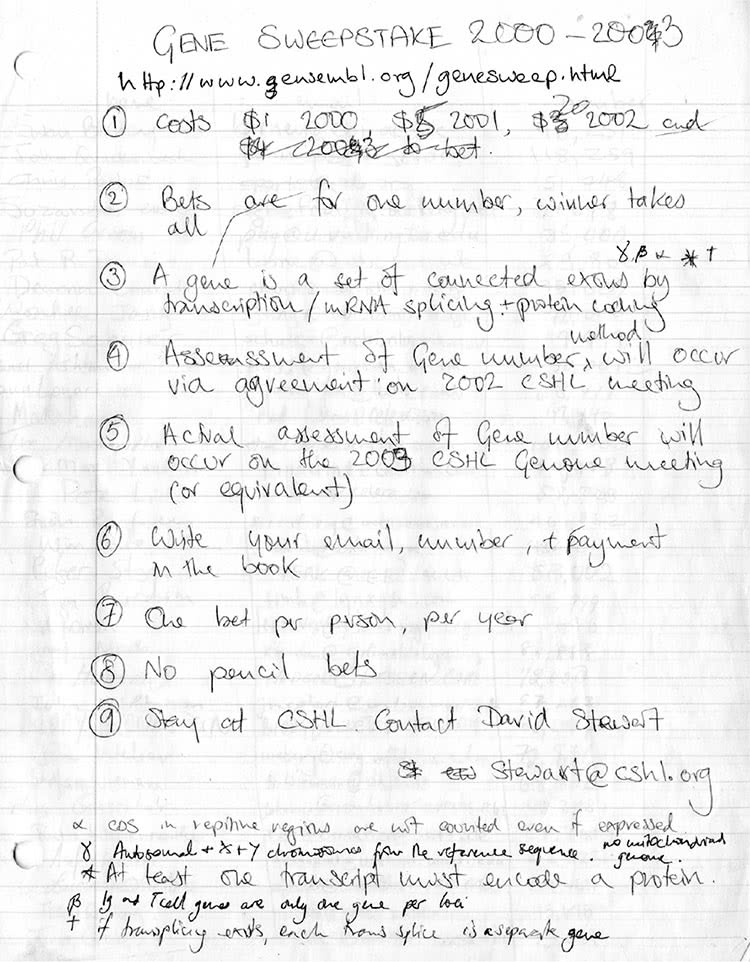 GENE SWEEPSTAKE 2000 – 2003
http://www.ensembl.org/genesweep.html
① Costs $1 2000 $5 2001, $20 2002 and
② Bets are for one number, winner takes
all
γ, β α * †
③ A gene is a set of connected exons by
transcription/mRNA splicing + protein coding
method
④ Assessment of Gene number, will occur
via agreement on 2002 CSHL meeting
⑤ Actual assessment of Gene number will
occur on the 2003 CSHL Genome meeting
(or equivalent)
⑥ Write your email, number, + payment
in the book
⑦ One bet per person, per year
⑧ No pencil bets
⑨ Stay at CSHL. Contact David Stewart
Stewart@cshl.org
α CDS in repitive regions are not counted even if expressed
γ Autosomal + X + Y chromosomes from the reference sequence. no mitochondrial
genome.
* At least one transcript must encode a protein.
β Ig and Tcell genes are only one gene per loci
† if transplicing exists, each trans splice is a separate gene